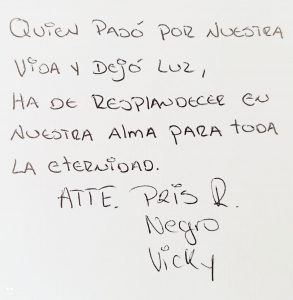 Quien pasó por nuestra
vida y dejó luz,
ha de resplandecer en
nuestra alma para toda
la eternidad.
Atte. Pris R.
Negro
Vicky